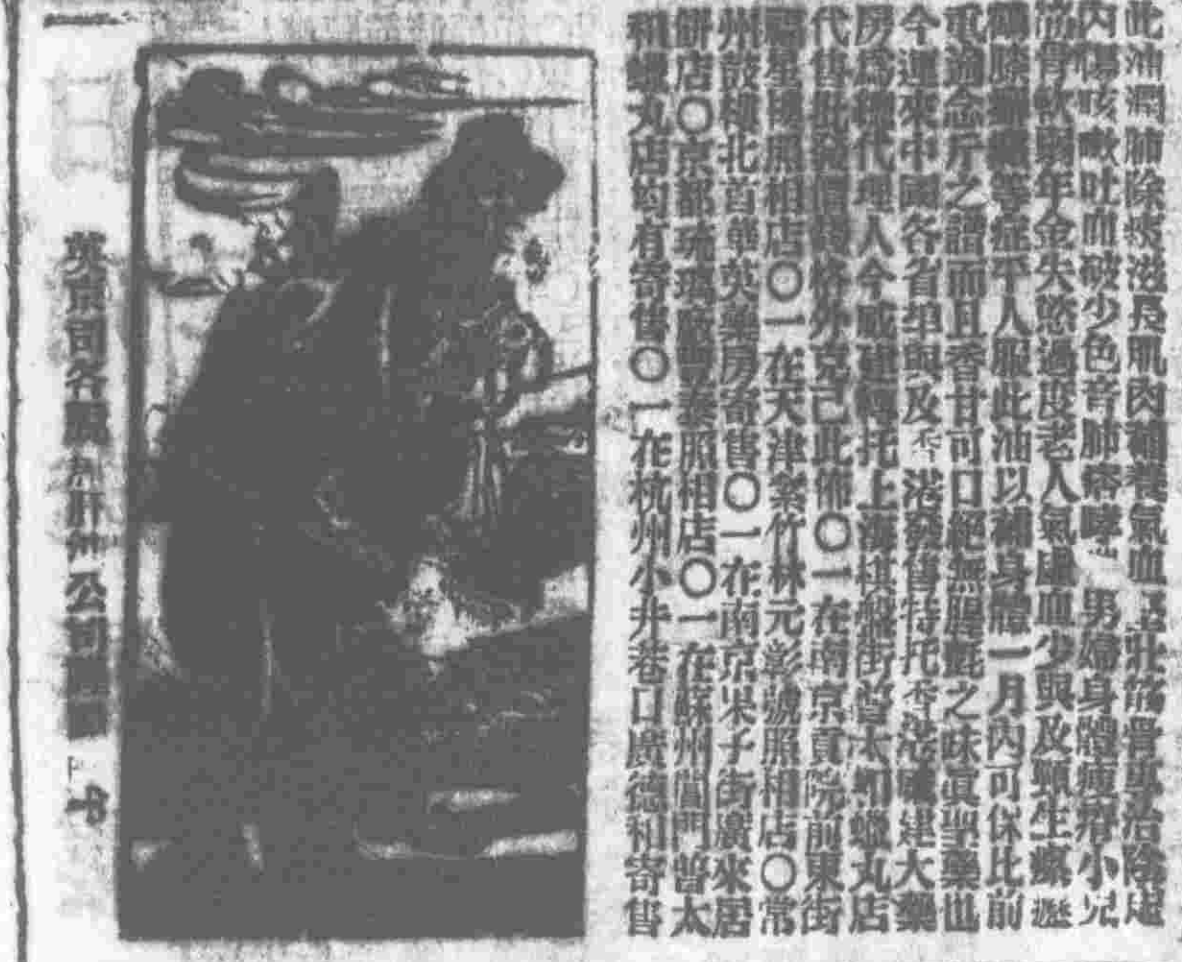 此油潤肺除痰滋長肌肉補養氣血堅壯筋骨專治陰虛
內傷咳嗽吐血破少色音肺癆哮 男婦身體瘦瘠小兒
筋骨軟弱年金失慾過度老人氣虛血少與及頸生瘰癧
等症平人服此油以補身體一月內可保比前
重逾念斤之譜而且香甘可口絕無腥 之味真聖藥也
今運來中國各省埠與及香港發售特托香港 建大藥
房為總代理人今威建轉托上海棋盤街普太和蠟丸店
代售批發價錢格外克己此佈〇一在南京貢院前東街
福星楊照相店〇一在天津紫竹林元彰號照相店〇常
州鼓樓北首華英藥房寄售〇一在南京果子街廣來居
餅店〇京都琉璃廠豐泰照相店〇一在蘇州閶門普太
和蠟丸店均有寄售〇一在杭州小井巷口廣德和寄售
英京司各 鰵肝油公司